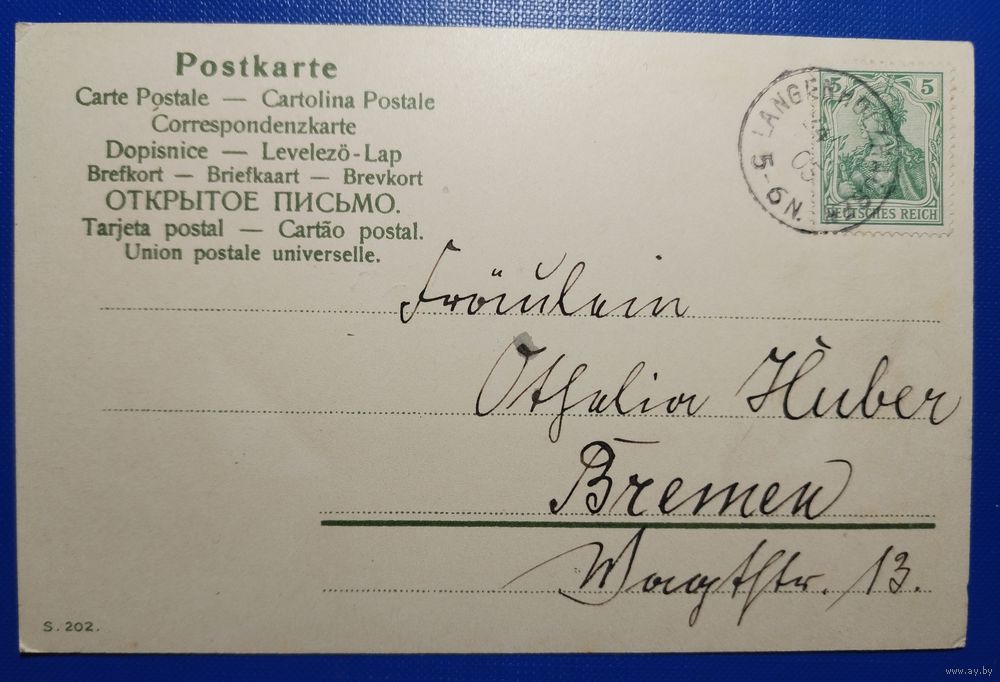 Postkarte
Carte Postale — Cartolina Postale
Correspondenzkarte
Dopisnice — Levelezö-Lap
Brefkort — Briefkaart — Brevkort
ОТКРЫТОЕ ПИСЬМО.
Tarjeta postal — Cartão postal.
Union postale universelle.
5 5
DEUTSCHES REICH
5-6 N.
Fräulein
Othalia Huber
Bremen
13.
S. 202.
www.ay.by